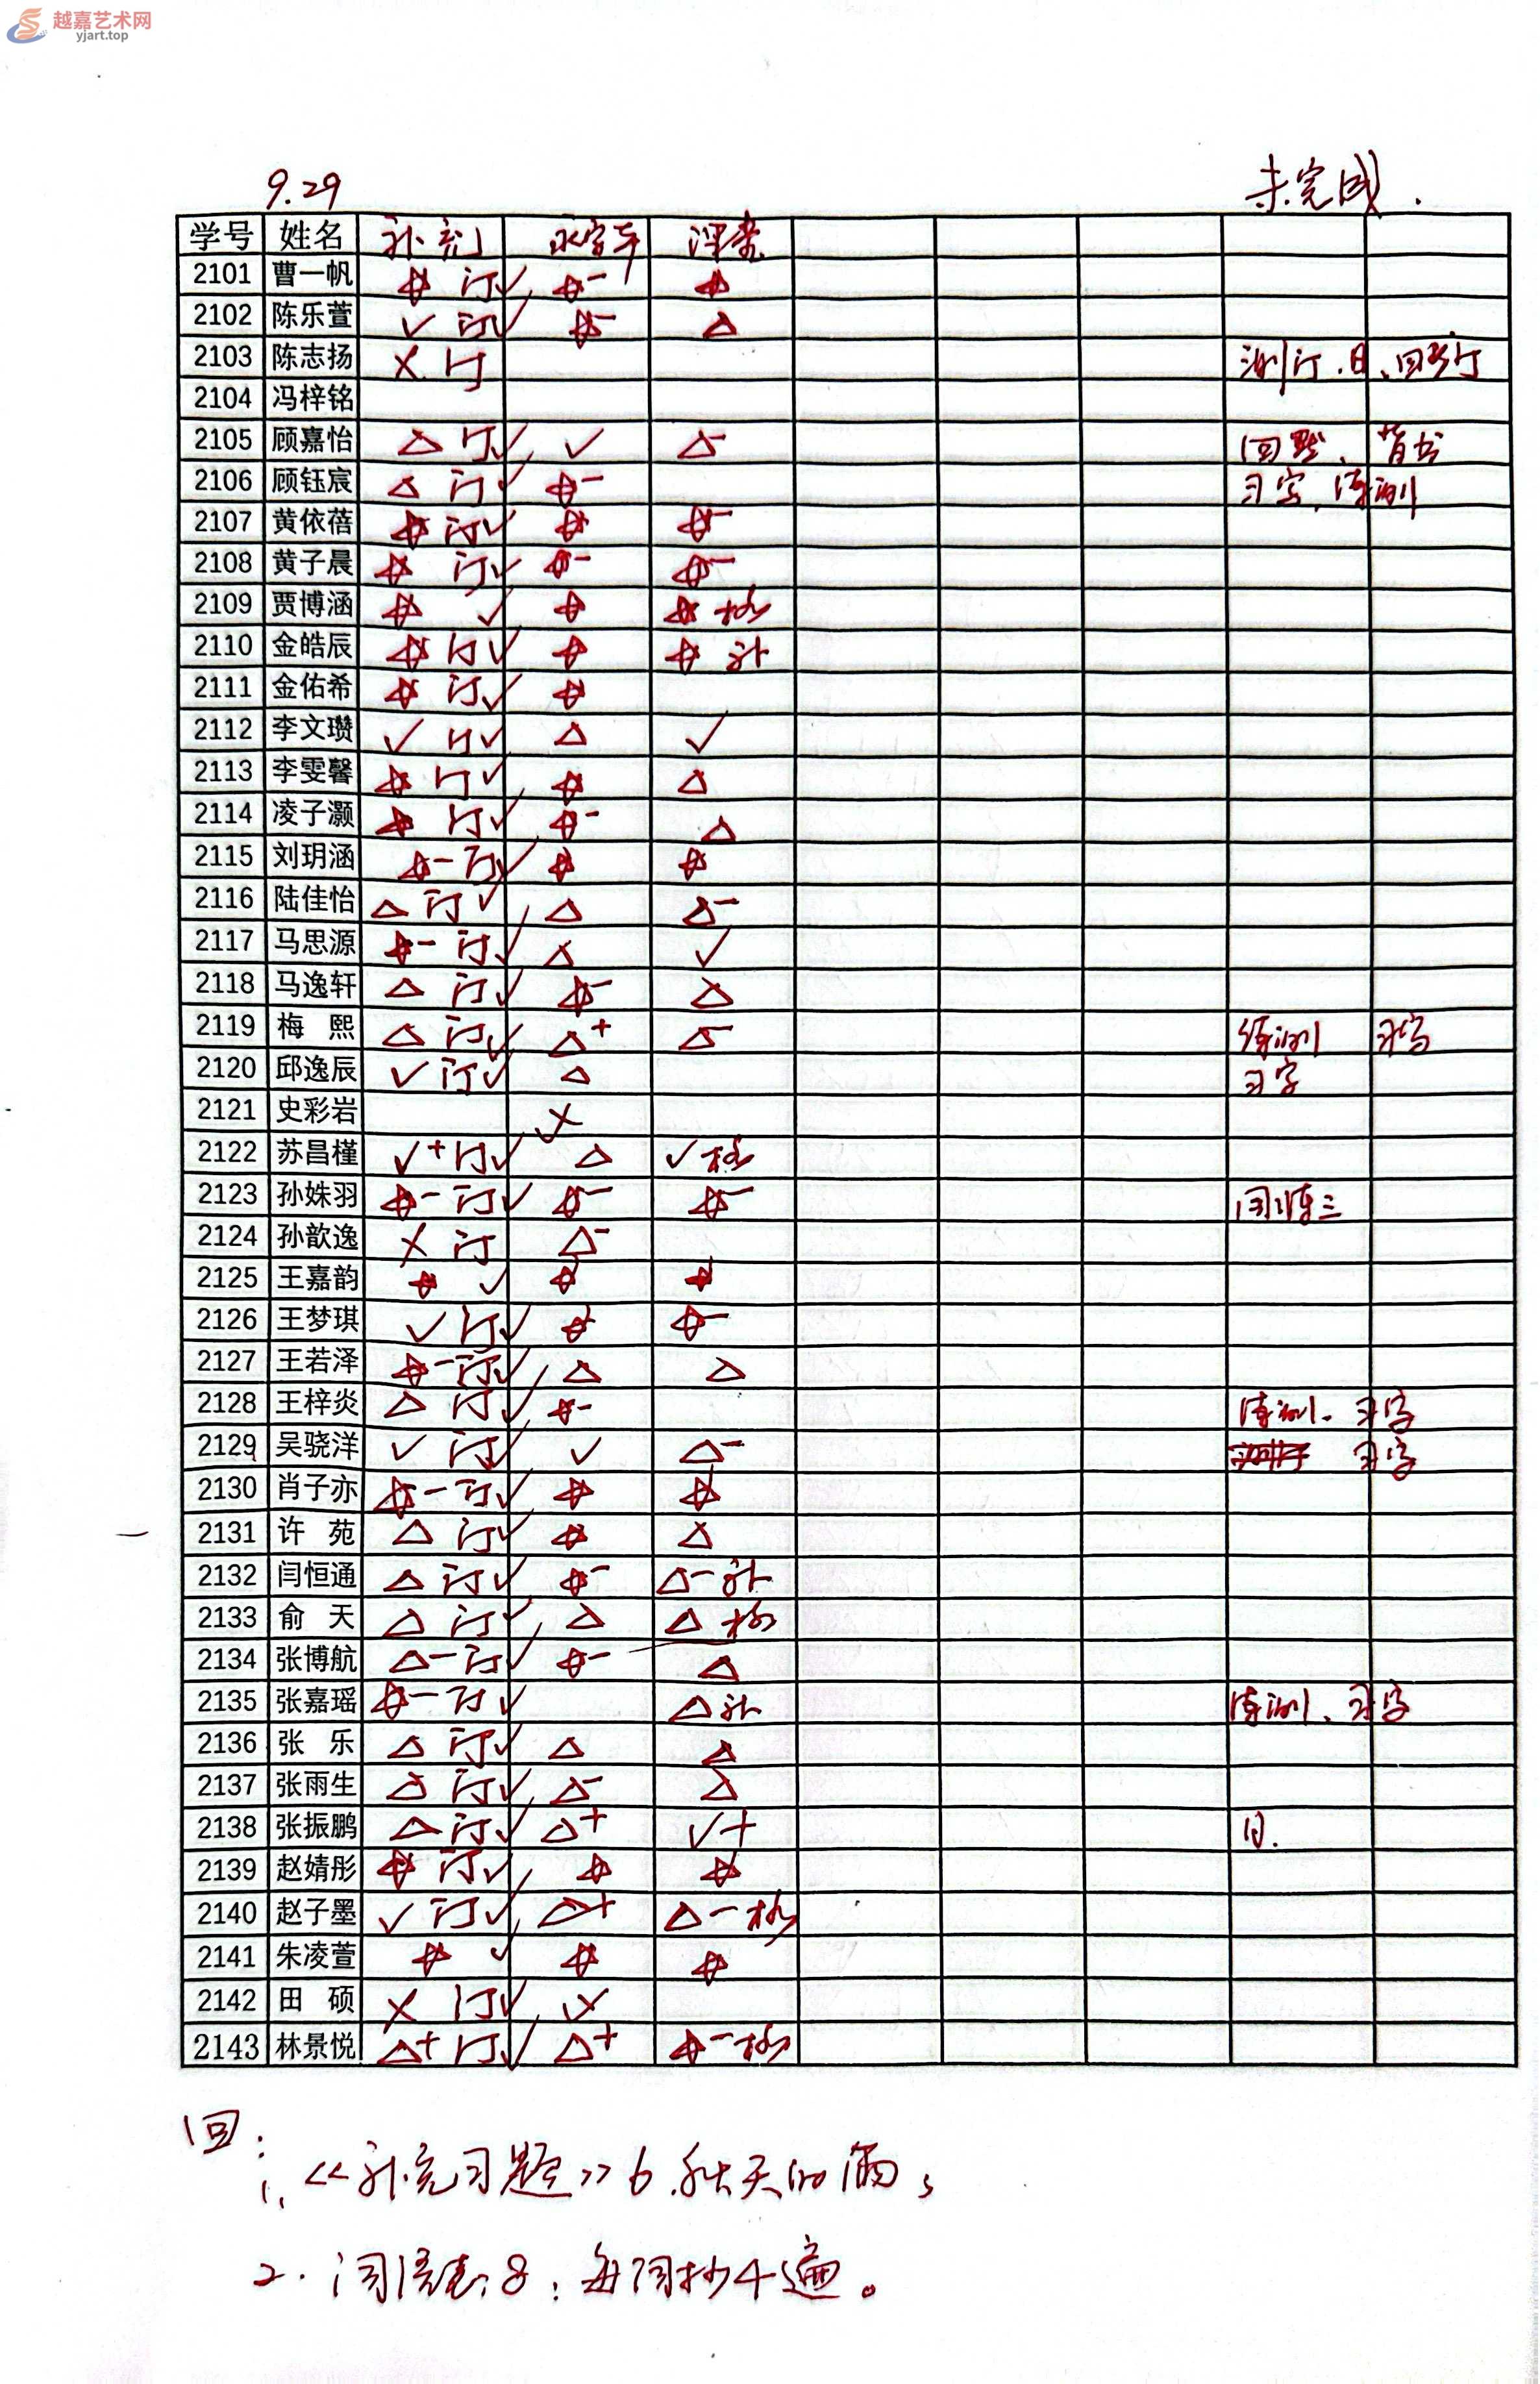 越嘉艺术网
yjart.top
9.29 未完成.
学号 姓名 补充
2101 曹一帆 ☆ 订✓ ☆- ☆
2102 陈乐萱 ✓ 订✓ ☆- △
2103 陈志扬 × 订
2104 冯梓铭
2105 顾嘉怡 △ 订✓ ✓ △- 回默、背书
2106 顾钰宸 △ 订✓ ☆- 习字,练测
2107 黄依蓓 ☆ 订✓ ☆ ☆-
2108 黄子晨 ☆ 订✓ ☆- ☆-
2109 贾博涵 ☆ ✓ ☆ ☆
2110 金皓辰 ☆ 订✓ ☆ ☆ 补
2111 金佑希 ☆ 订✓ ☆
2112 李文瓒 ✓ 订✓ △ ✓
2113 李雯馨 ☆ 订✓ ☆ △
2114 凌子灏 ☆ 订✓ ☆- △
2115 刘玥涵 ☆- 订✓ ☆ ☆
2116 陆佳怡 △ 订✓ △ △-
2117 马思源 ☆- 订✓ △ ✓
2118 马逸轩 △ 订✓ ☆- △
2119 梅 熙 △ 订✓ △+ △- 练测 习字
2120 邱逸辰 ✓ 订✓ △ 习字
2121 史彩岩 ×
2122 苏昌槿 ✓+ 订✓ △ ✓
2123 孙姝羽 ☆- 订✓ ☆- ☆-
2124 孙歆逸 × 订 △-
2125 王嘉韵 ☆ ✓ ☆ ☆
2126 王梦琪 ✓ 订✓ ☆ ☆-
2127 王若泽 ☆- 订✓ △ △
2128 王梓炎 △ 订✓ ☆- 练测、习字
2129 吴骁洋 ✓ 订✓ ✓ △- 习字
2130 肖子亦 ☆- 订✓ ☆ ☆
2131 许 苑 △ 订✓ ☆ △
2132 闫恒通 △ 订✓ ☆- △- 补
2133 俞 天 △ 订✓ △ △
2134 张博航 △- 订✓ ☆- △
2135 张嘉瑶 ☆- 订✓ △ 补 练测、习字
2136 张 乐 △ 订✓ △ △
2137 张雨生 △ 订✓ △- △
2138 张振鹏 △ 订✓ △+ ✓+
2139 赵婧彤 ☆ 订✓ ☆ ☆
2140 赵子墨 ✓ 订✓ △+ △-
2141 朱凌萱 ☆ ✓ ☆ ☆
2142 田 硕 × 订✓ ×
2143 林景悦 △+ 订✓ △+ ☆-
回:
1、《补充习题》6.秋天的雨;
2.词语表:8:每词抄4遍。